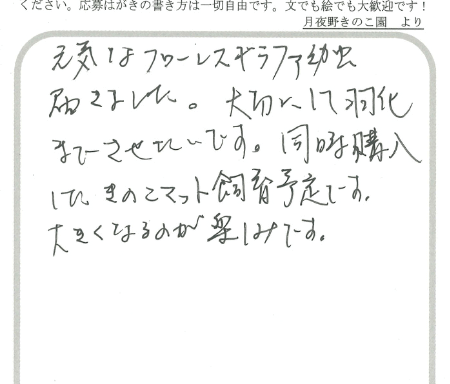 ください。応募はがきの書き方は一切自由です。文でも絵でも大歓迎です！
月夜野きのこ園　より
元気なフローレスギラファ幼虫
届きました。大切にして羽化
までさせたいです。同時購入
したきのこマット飼育予定です。
大きくなるのが楽しみです。